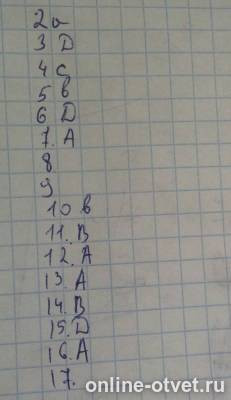 2a
3 D
4 c
5 b
6 D
7. A
8
9
10 b
11. B
12. A
13. A
14. B
15. D
16. A
17.
online-otvet.ru